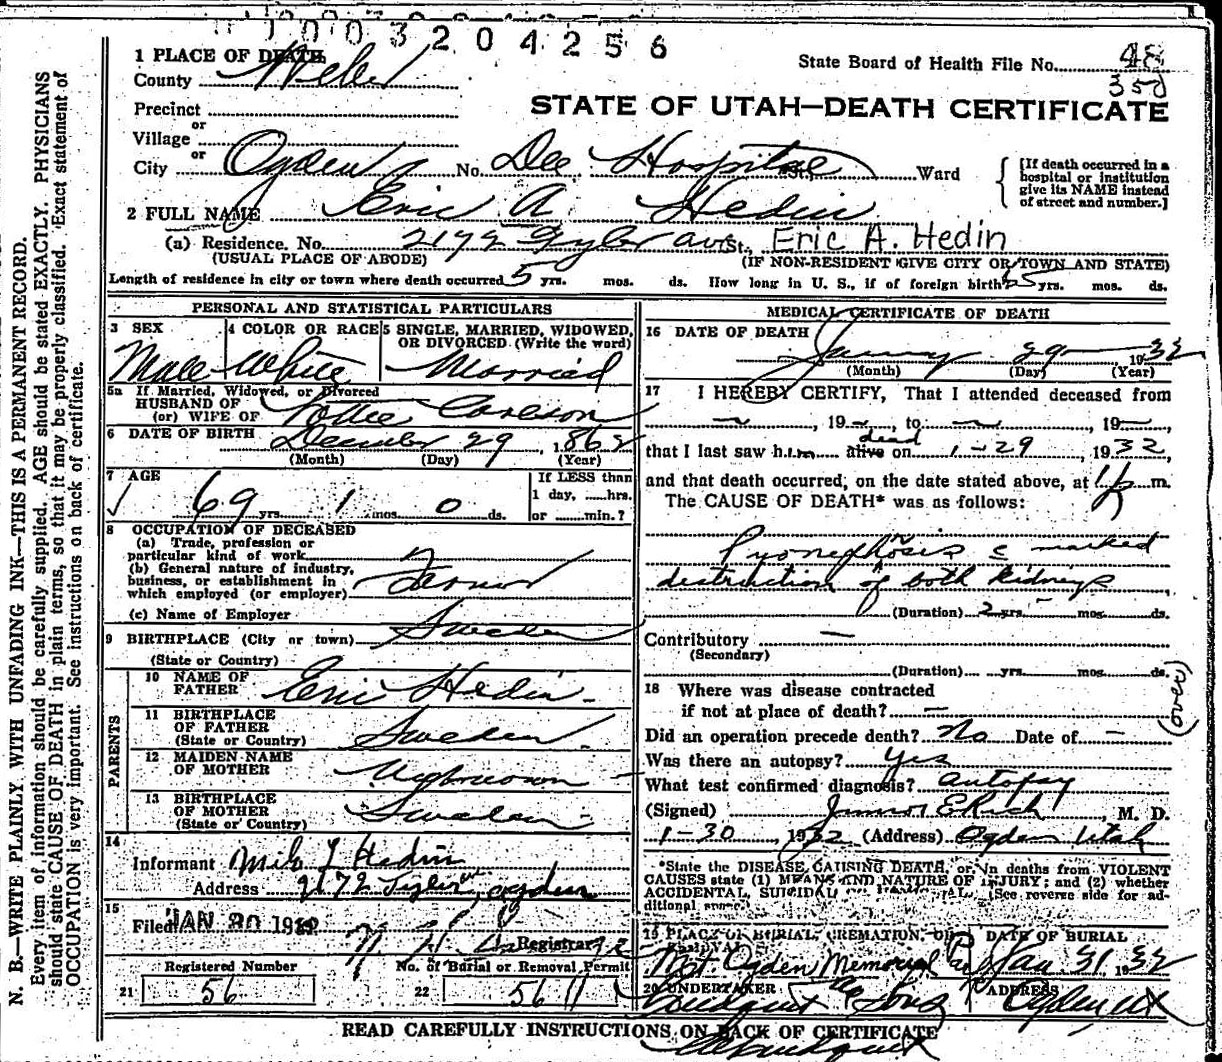 1003204256
1 PLACE OF DEATH
County Weber
State Board of Health File No. 48
350
STATE OF UTAH—DEATH CERTIFICATE
Precinct
or
Village
or
City Ogden No. Dee Hospital St. Ward
[If death occurred in a
hospital or institution
give its NAME instead
of street and number.]
2 FULL NAME Eric A Hedin
(a) Residence. No. 2172 Tyler ave St. Eric A. Hedin
(USUAL PLACE OF ABODE) (IF NON-RESIDENT GIVE CITY OR TOWN AND STATE)
Length of residence in city or town where death occurred 5 yrs. mos. ds. How long in U. S., if of foreign birth? yrs. mos. ds.
PERSONAL AND STATISTICAL PARTICULARS
3 SEX 4 COLOR OR RACE 5 SINGLE, MARRIED, WIDOWED,
OR DIVORCED (Write the word)
Male White Married
5a If Married, Widowed, or Divorced
HUSBAND OF
(or) WIFE OF Lottie Carlson
6 DATE OF BIRTH December 29, 1862
(Month) (Day) (Year)
7 AGE
69 yrs 1 mos 0 ds.
If LESS than
1 day, ......hrs.
or .......min.?
8 OCCUPATION OF DECEASED
(a) Trade, profession or
particular kind of work
(b) General nature of industry,
business, or establishment in
which employed (or employer) Farmer
(c) Name of Employer
9 BIRTHPLACE (City or town) Sweden
(State or Country)
PARENTS
10 NAME OF
FATHER Eric Hedin
11 BIRTHPLACE
OF FATHER
(State or Country) Sweden
12 MAIDEN NAME
OF MOTHER Unknown
13 BIRTHPLACE
OF MOTHER
(State or Country) Sweden
14
Informant Milo Hedin
Address 2172 Tyler ave, Ogden
15
Filed JAN 30 1932
Registrar
Registered Number
21 56
No. of Burial or Removal Permit
22 56
MEDICAL CERTIFICATE OF DEATH
16 DATE OF DEATH
January 29 1932
(Month) (Day) (Year)
17 I HEREBY CERTIFY, That I attended deceased from
—, 19—, to —, 19—
that I last saw him dead alive on 1-29 1932,
and that death occurred, on the date stated above, at m.
The CAUSE OF DEATH* was as follows:
Pyonephrosis c marked
destruction of both kidneys
(Duration) 2 yrs - mos. ds.
Contributory —
(Secondary)
(Duration) yrs. mos. ds.
18 Where was disease contracted
if not at place of death? —
(over)
Did an operation precede death? No Date of —
Was there an autopsy? Yes
What test confirmed diagnosis? autopsy
(Signed) Junior E Rich, M. D.
1-30 1932 (Address) Ogden Utah
*State the DISEASE CAUSING DEATH, or, in deaths from VIOLENT
CAUSES state (1) MEANS AND NATURE OF INJURY; and (2) whether
ACCIDENTAL, SUICIDAL (See reverse side for ad-
ditional space.)
19 PLACE OF BURIAL, CREMATION, OR
REMOVAL
DATE OF BURIAL
Mt. Ogden Memorial Jan 31 1932
20 UNDERTAKER ADDRESS
Lindquist & Sons Ogden Ut
READ CAREFULLY INSTRUCTIONS ON BACK OF CERTIFICATE
N. B.—WRITE PLAINLY WITH UNFADING INK—THIS IS A PERMANENT RECORD.
Every item of information should be carefully supplied. AGE should be stated EXACTLY. PHYSICIANS
should state CAUSE OF DEATH in plain terms, so that it may be properly classified. Exact statement of
OCCUPATION is very important. See instructions on back of certificate.